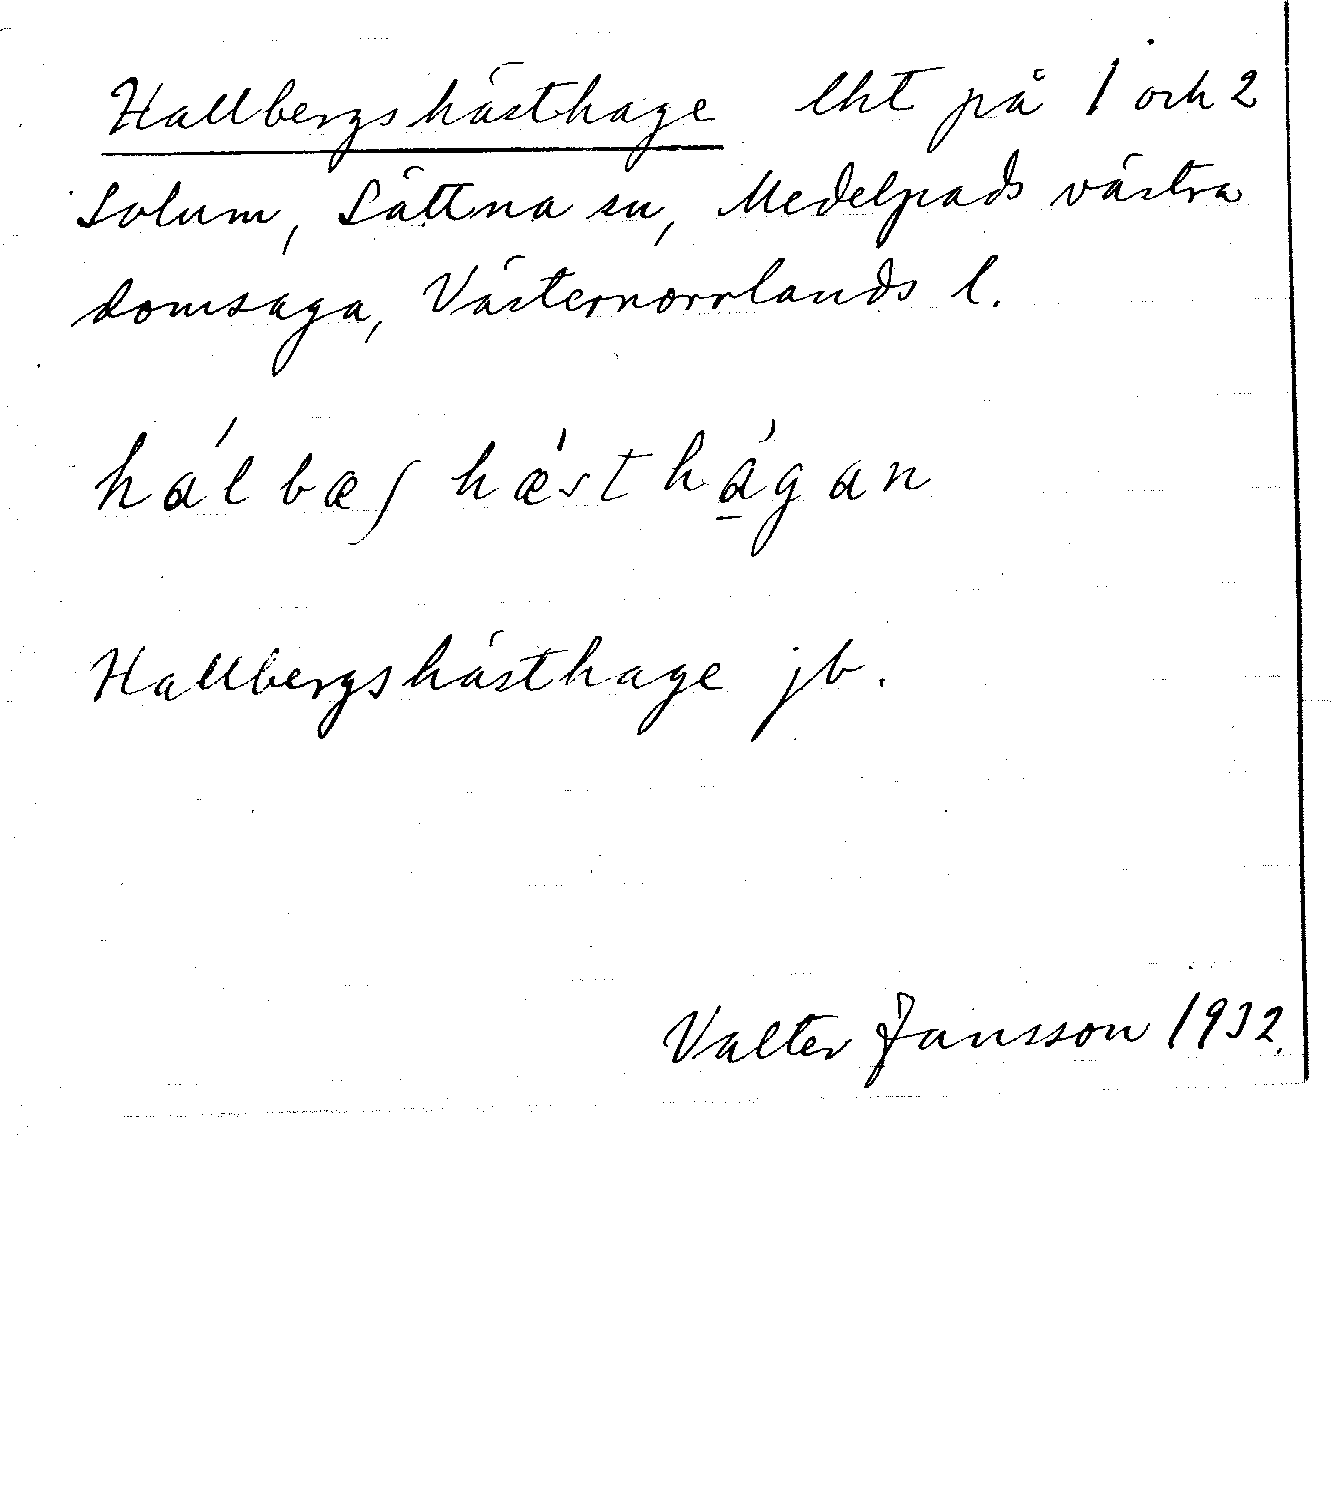 Hallbergshästhage lht på 1 och 2
Solum, Sättna sn, Medelpads västra
domsaga, Västernorrlands l.
hálbæʃ hǽsthа̱́gan
Hallbergshästhage jb.
Valter Jansson 1932.